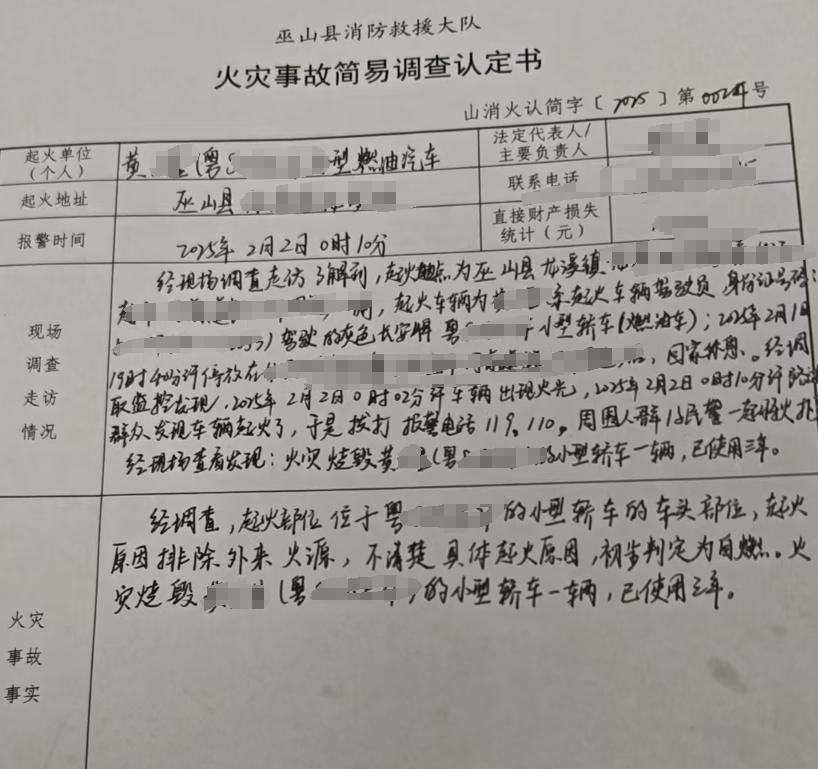 巫山县消防救援大队
火灾事故简易调查认定书
山消火认简字〔2025〕第0024号
起火单位
(个人)
黄 (粤 型燃油汽车
法定代表人/
主要负责人
起火地址
巫山县
联系电话
报警时间
2025年2月2日0时10分
直接财产损失
统计(元)
现场
调查
走访
情况
经现场调查走访了解到,起火地点为巫山县龙溪镇
,起火车辆为黄 系起火车辆驾驶员,身份证号码:
)驾驶的灰色长安牌粤 小型轿车(燃油车);2025年2月1日
19时40分许停放在 ,回家休息。经调
取监控发现,2025年2月2日0时02分许车辆出现火光,2025年2月2日0时10分许
群众发现车辆起火了,于是拨打报警电话119、110。周围人群 民警一起将火扑
经现场查看发现:火灾烧毁黄 (粤 的小型轿车一辆,已使用三年。
火灾
事故
事实
经调查,起火部位位于粤 的小型轿车的车头部位,起火
原因排除外来火源,不清楚具体起火原因,初步判定为自燃。火
灾烧毁 (粤 的小型轿车一辆,已使用三年。